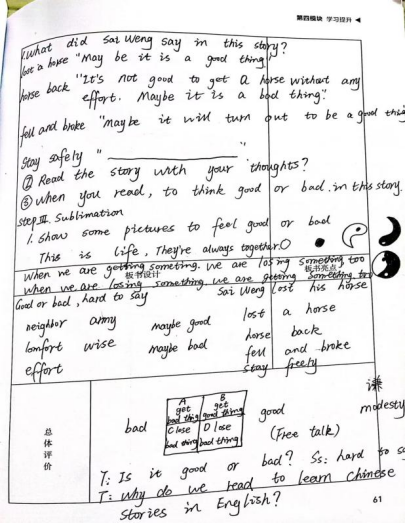 第四模块 学习提升
1. What did Sai Weng say in this story?
Got a horse "May be it is a good thing"
horse back "It's not good to get a horse without any
effort. Maybe it is a bad thing."
fell and broke "maybe it will turn out to be a good thi
Stay safely " "
② Read the story with your thoughts?
③ When you read, to think good or bad in this story.
Step III. Sublimation
1. Show some pictures to feel good or bad
This is life, They're always together.
When we are getting someting, we are losing someting, too
板书设计 板书亮点
When we are losing something, we are getting something, too
God or bad, hard to say Sai Weng lost his horse
neighbor army maybe good lost a horse
comfort wise maybe bad horse back
effort fell and broke
stay freely
总体评价
bad
A get bad thing
B get good thing
C lose bad thing
D lose bad thing
good
谦
modesty
(Free talk)
T: Is it good or bad? Ss: hard to sa
T: Why do we need to learn Chinese
Stories in English?
61